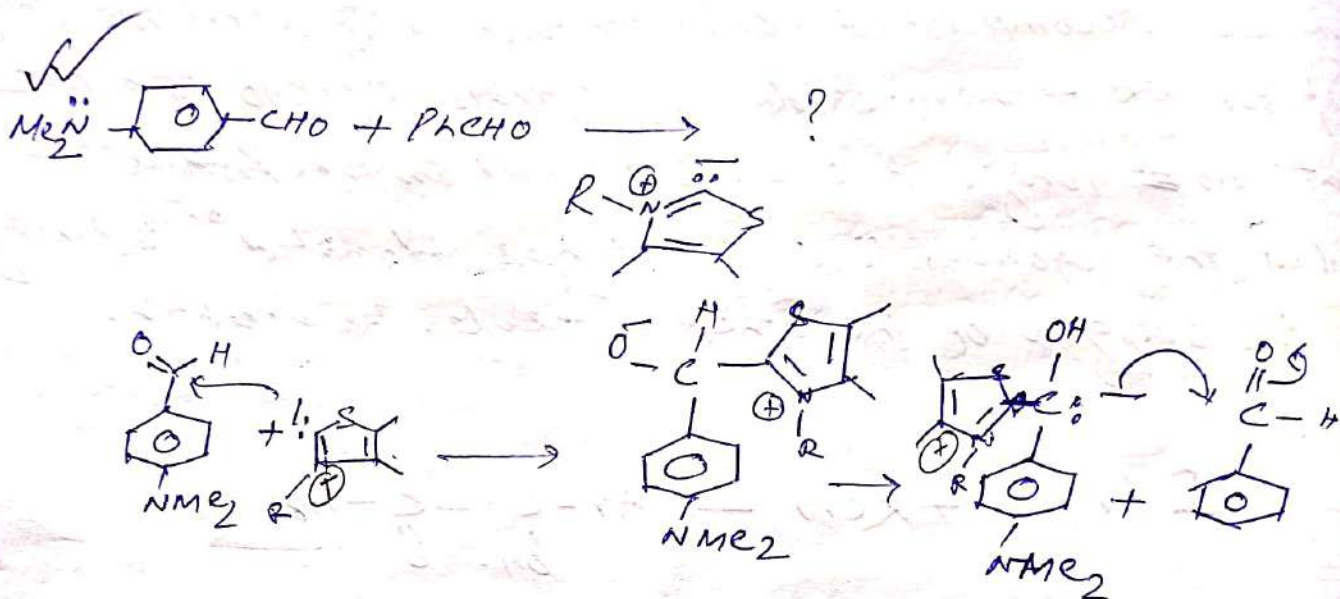 Me2N̈ O CHO + PhCHO ⟶ ?
R N ⊕ S
O H
+ S
O NMe2 R ⊕
O⁻ H S
C
⊕ N
R
O
NMe2
OH
S C
⊕ N
R O
NMe2
+
O
C-H
O